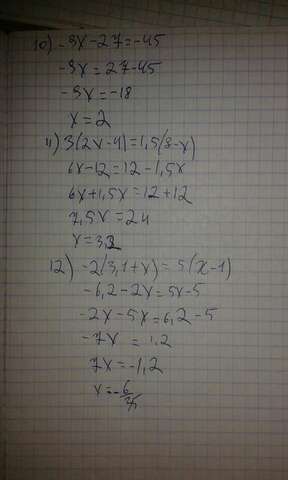 10) -9x-27=-45
-9x=27-45
-9x=-18
x=2
11) 3(2x-4)=1,5(8-x)
6x-12=12-1,5x
6x+1,5x=12+12
7,5x=24
x=3,2
12) -2(3,1+x)=5(x-1)
-6,2-2x=5x-5
-2x-5x=6,2-5
-7x=1,2
7x=-1,2
x=-6/35